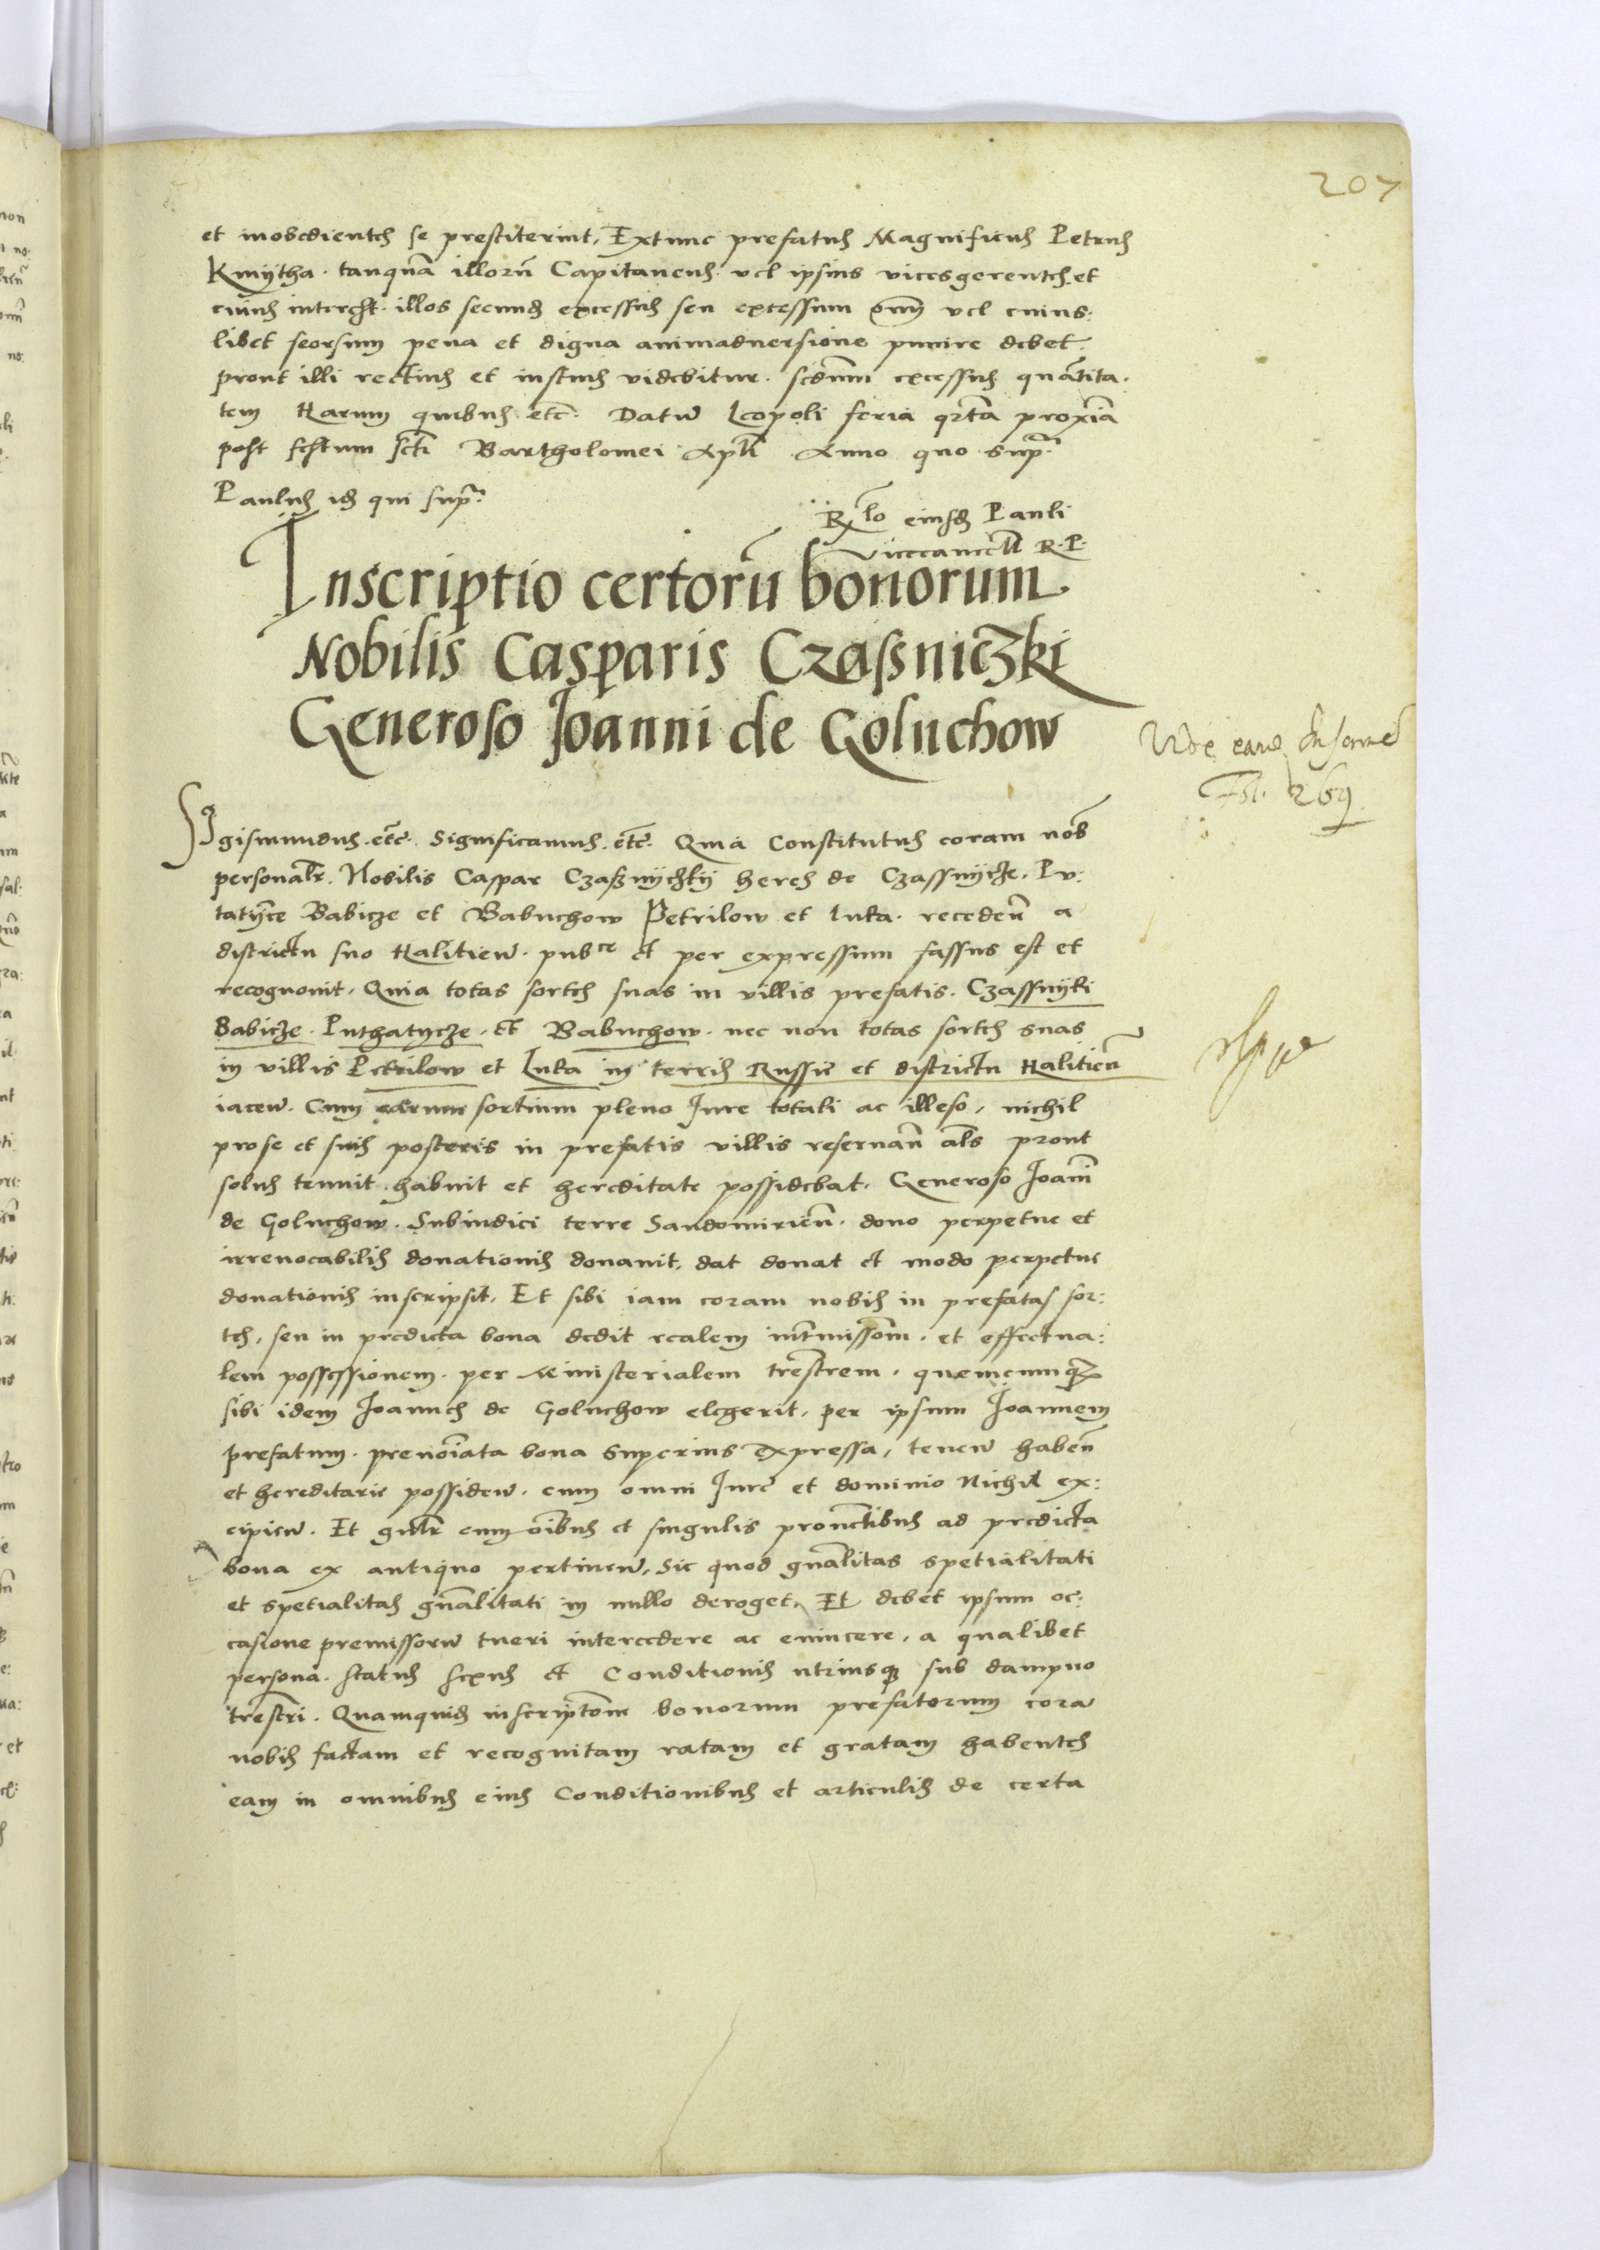 207
et inobedientes se prestiterint, Extunc prefatus Magnificus Petrus
Kmÿtha. tanquã illorũ Capitaneus. vel ipsius vicesgerentes, et
cuius interest. illos secund excessus seu excessum omĩ vel cuius:
libet seorsum pena et digna animaduersione punire debet.
prout illi rectius et iustius videbitur. scdnm excessus quãtita.
tem Harum quibus etc̃. Datum Leopoli feria qrta proxĩa
post festum scti Bartholomei Apli Anno quo supra.
Paulus id qui supra.
Rlo eiusd Pauli
vicecancell R. P.
Inscriptio certorũ bonorum
Nobilis Casparis Czaßniczki
Generoso Joanni de Goluchow
Vide eand Inferius
Fol. 269
Sigismundus. etc̃. Significamus. etc̃. Quia Constitutus coram nob
personalr. Nobilis Caspar Czaßnÿczkÿ heres de Czassnÿcze, Pu:
tatÿcze Babicze et Babuchow Petrilow et Luka. receden̄ a
districtu suo Halicien. pubce et per expressum fassus est et
recognouit, Quia totas sortes suas in villis prefatis. Czassnÿki
Babicze. Puthatycze. et Babuchow. nec non totas sortes suas
in villis Petrilow et Luka in terris Russie et districtu Halicien̄
iacen. Cum earum sortium pleno Jure totali ac illeso, nichil
prose et suis posteris in prefatis villis reseruan̄ als prout
solus tenuit. habuit et hereditate possidebat, Generoso Joañi
de Goluchow. Subiudici terre Sandomirien̄. dono perpetue et
irreuocabilis donationis donauit, dat donat et modo perpetue
donationis inscripsit, Et sibi iam coram nobis in prefatas sor:
tes, seu in predicta bona dedit realem intmissom̃. et effectua:
lem possessionem. per Ministerialem trestrem. quemcumqz
sibi idem Joannes de Goluchow elegerit, per ipsum Joannem
prefatum. prenoĩata bona superius expressa, tenen haben̄
et hereditarie possiden. cum omni Jure et dominio Nichil ex:
cipien. Et gnlr cum oĩbus et singulis prouẽtibus ad predicta
bona ex antiquo pertinen, Sic quod gñalitas spetialitati
et spetialitas gñalitati in nullo deroget, Et debet ipsum oc:
casione premissorum tueri intercedere ac euincere, a qualibet
persona. status sexus et Conditionis utriusqz sub dampno
trestri. Quamquid inscriptom̃ bonorum prefatorum cora
nobis factam et recognitam ratam et gratam habentes
eam in omnibus eius Conditionibus et articulis de certa